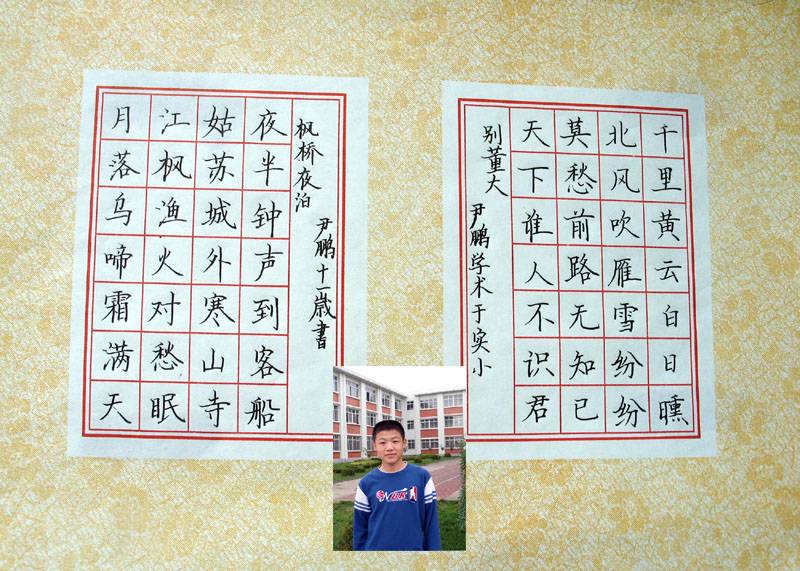 月落乌啼霜满天
江枫渔火对愁眠
姑苏城外寒山寺
夜半钟声到客船
枫桥夜泊
尹鹏十一歲書
千里黄云白日曛
北风吹雁雪纷纷
莫愁前路无知已
天下谁人不识君
别董大
尹鹏学术于实小